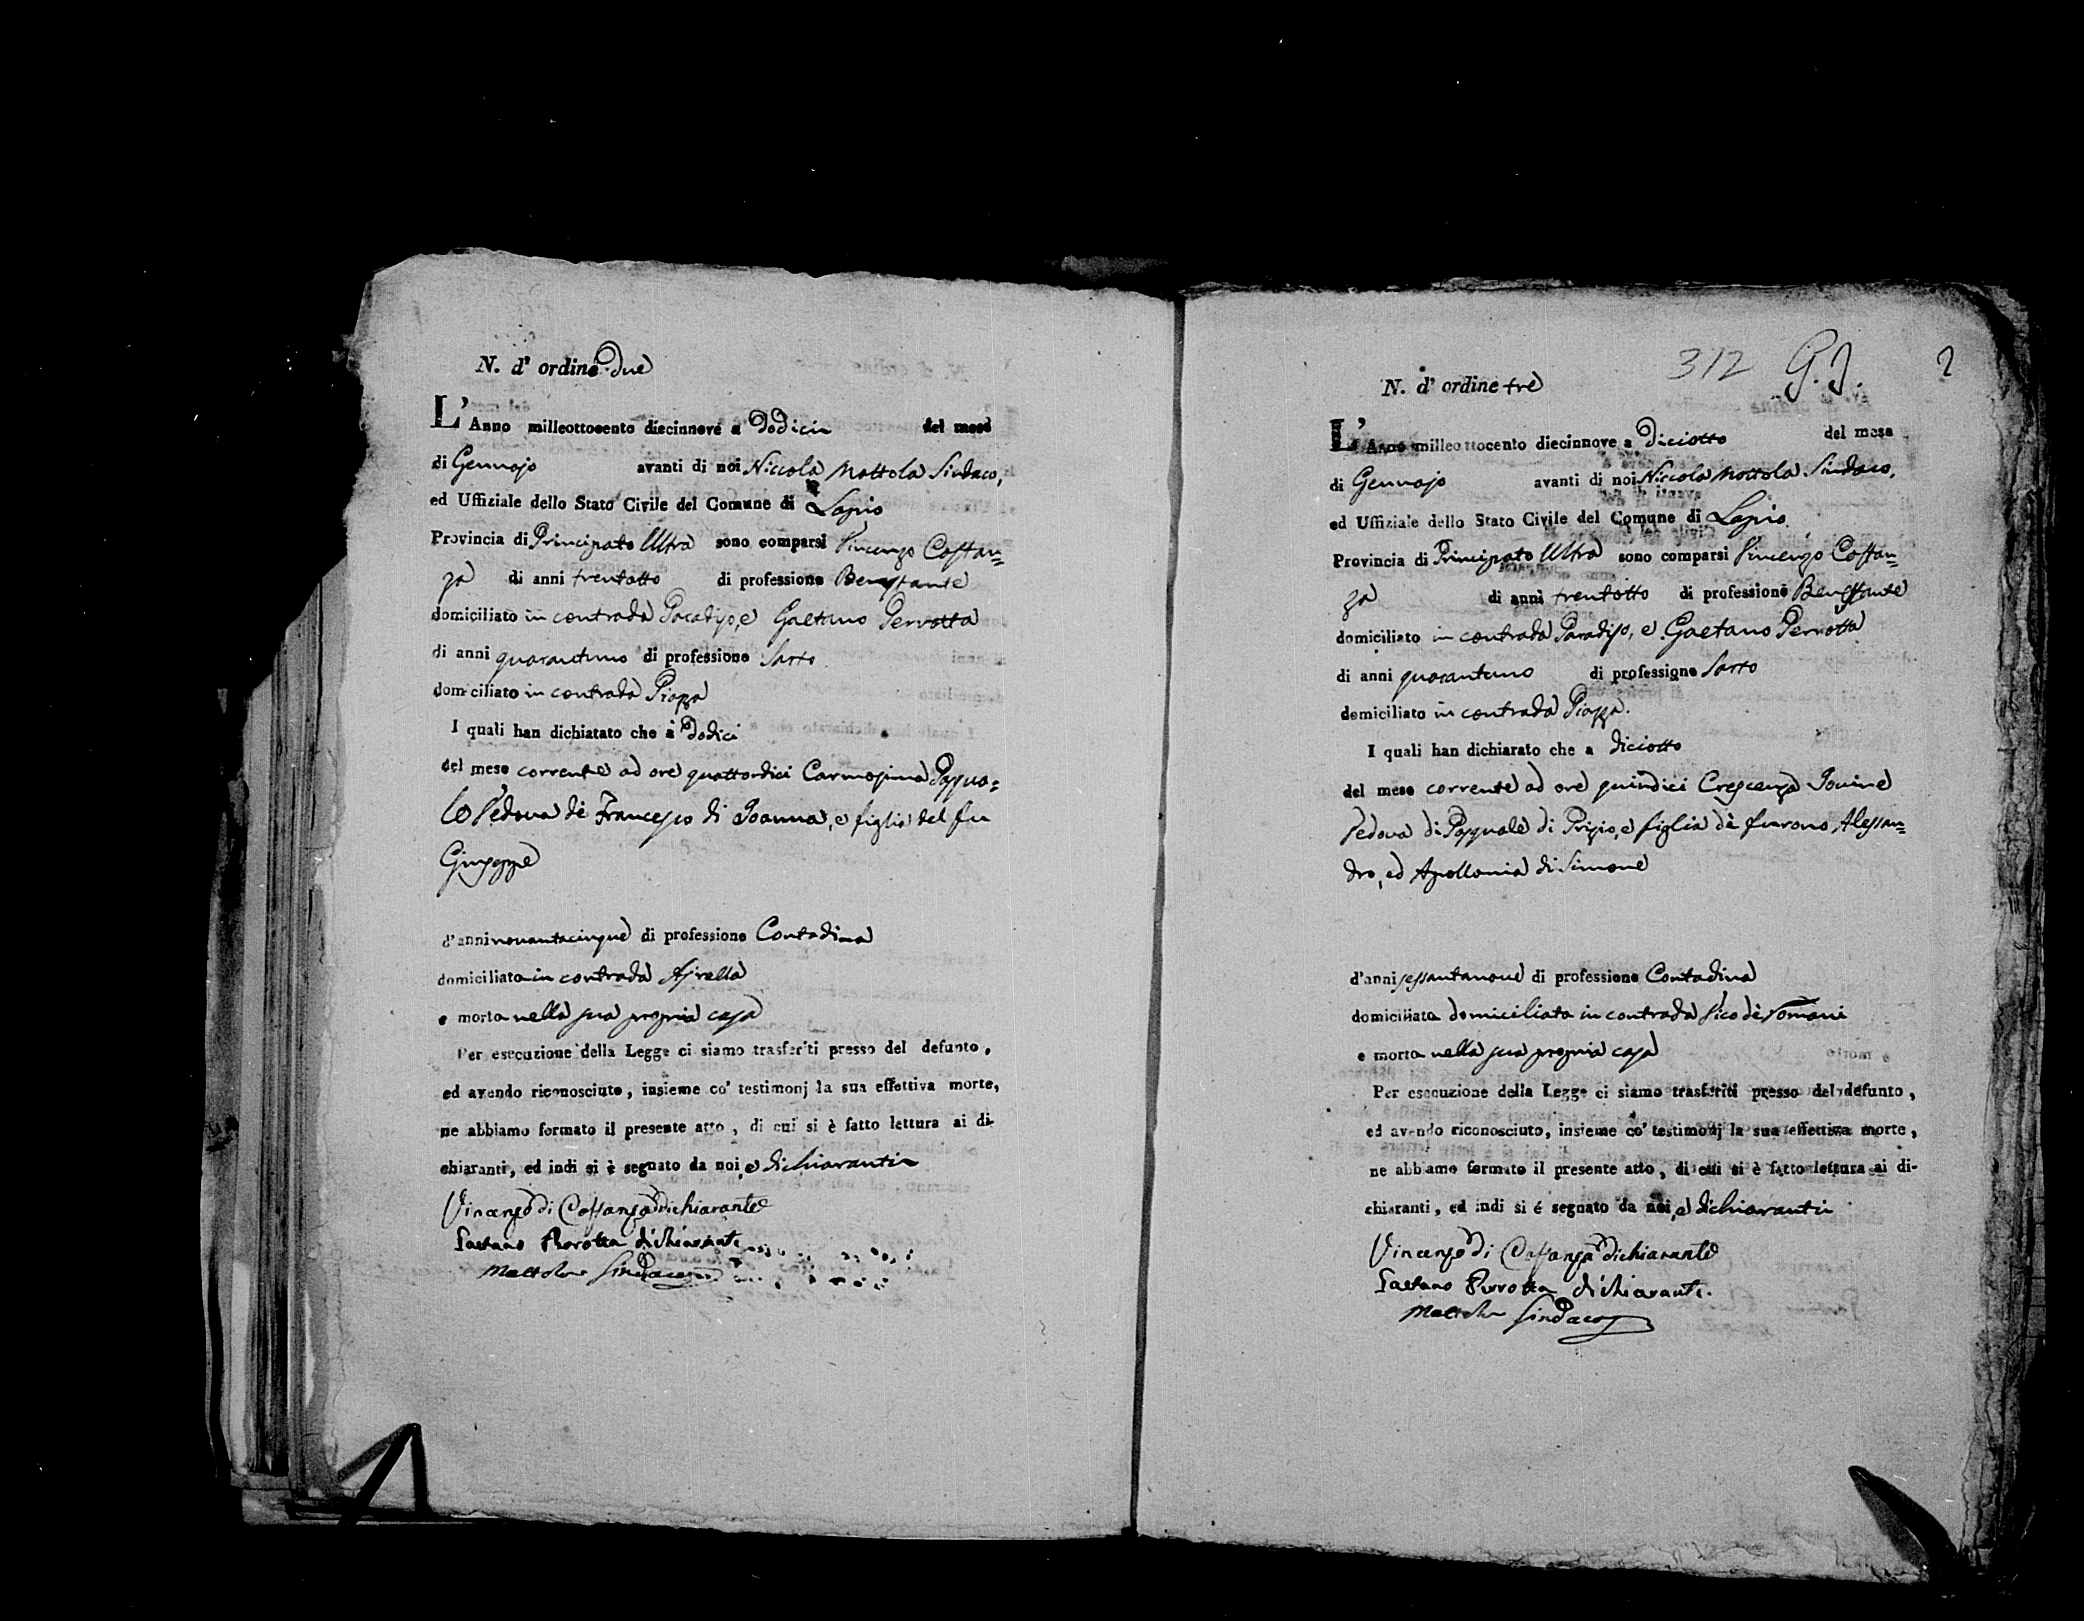 N. d' ordine due
L'Anno milleottocento diecinnove a Dodici del mese
di Gennajo avanti di noi Niccola Mottola Sindaco,
ed Uffiziale dello Stato Civile del Comune di Lapio
Provincia di Principato Ultra sono comparsi Vincenzo Costan=
za di anni trentotto di professione Benestante
domiciliato in contrada Paradiso, e Gaetano Perrotta
di anni quarantuno di professione Sarto
domiciliato in contrada Piazza
I quali han dichiatato che a Dodici
del mese corrente ad ore quattordici Carmosina Pasqua=
le Vedova di Francesco di Joanna, e figlia del fu
Giuseppe
d'anni novantacinque di professione Contadina
domiciliato in contrada
e morta nella sua propria casa
Per esecuzione della Legge ci siamo trasferiti presso del defunto,
ed avendo riconosciuto, insieme co' testimonj la sua effettiva morte,
ne abbiamo formato il presente atto, di cui si è fatto lettura ai di-
chiaranti, ed indi si è segnato da noi, e dichiaranti
Vincenzo di Costanza dichiarante
Gaetano Perrotta dichiarante
Mottola Sindaco
312 G. J. 2
N. d' ordine tre
L'Anno milleottocento diecinnove a diciotto del mese
di Gennajo avanti di noi Niccola Mottola Sindaco,
ed Uffiziale dello Stato Civile del Comune di Lapio
Provincia di Principato Ultra sono comparsi Vincenzo Costan=
za di anni trentotto di professione Benestante
domiciliato in contrada Paradiso, e Gaetano Perrotta
di anni quarantuno di professione Sarto
domiciliato in contrada Piazza.
I quali han dichiarato che a diciotto
del mese corrente ad ore quindici Crescenza Jovine
Vedova di Pasquale di Prizio, e figlia de furono Alessan=
dro, ed Apollonia di Simone
d'anni sessantanove di professione Contadina
domiciliata domiciliata in contrada Vico de
e morta nella sua propria casa
Per esecuzione della Legge ci siamo trasferiti presso del defunto,
ed avendo riconosciuto, insieme co' testimonj la sua effettiva morte,
ne abbiamo formato il presente atto, di cui si è fatto lettura ai di-
chiaranti, ed indi si é segnato da noi, e dichiaranti
Vincenzo di Costanza dichiarante
Gaetano Perrotta dichiarante.
Mottola Sindaco